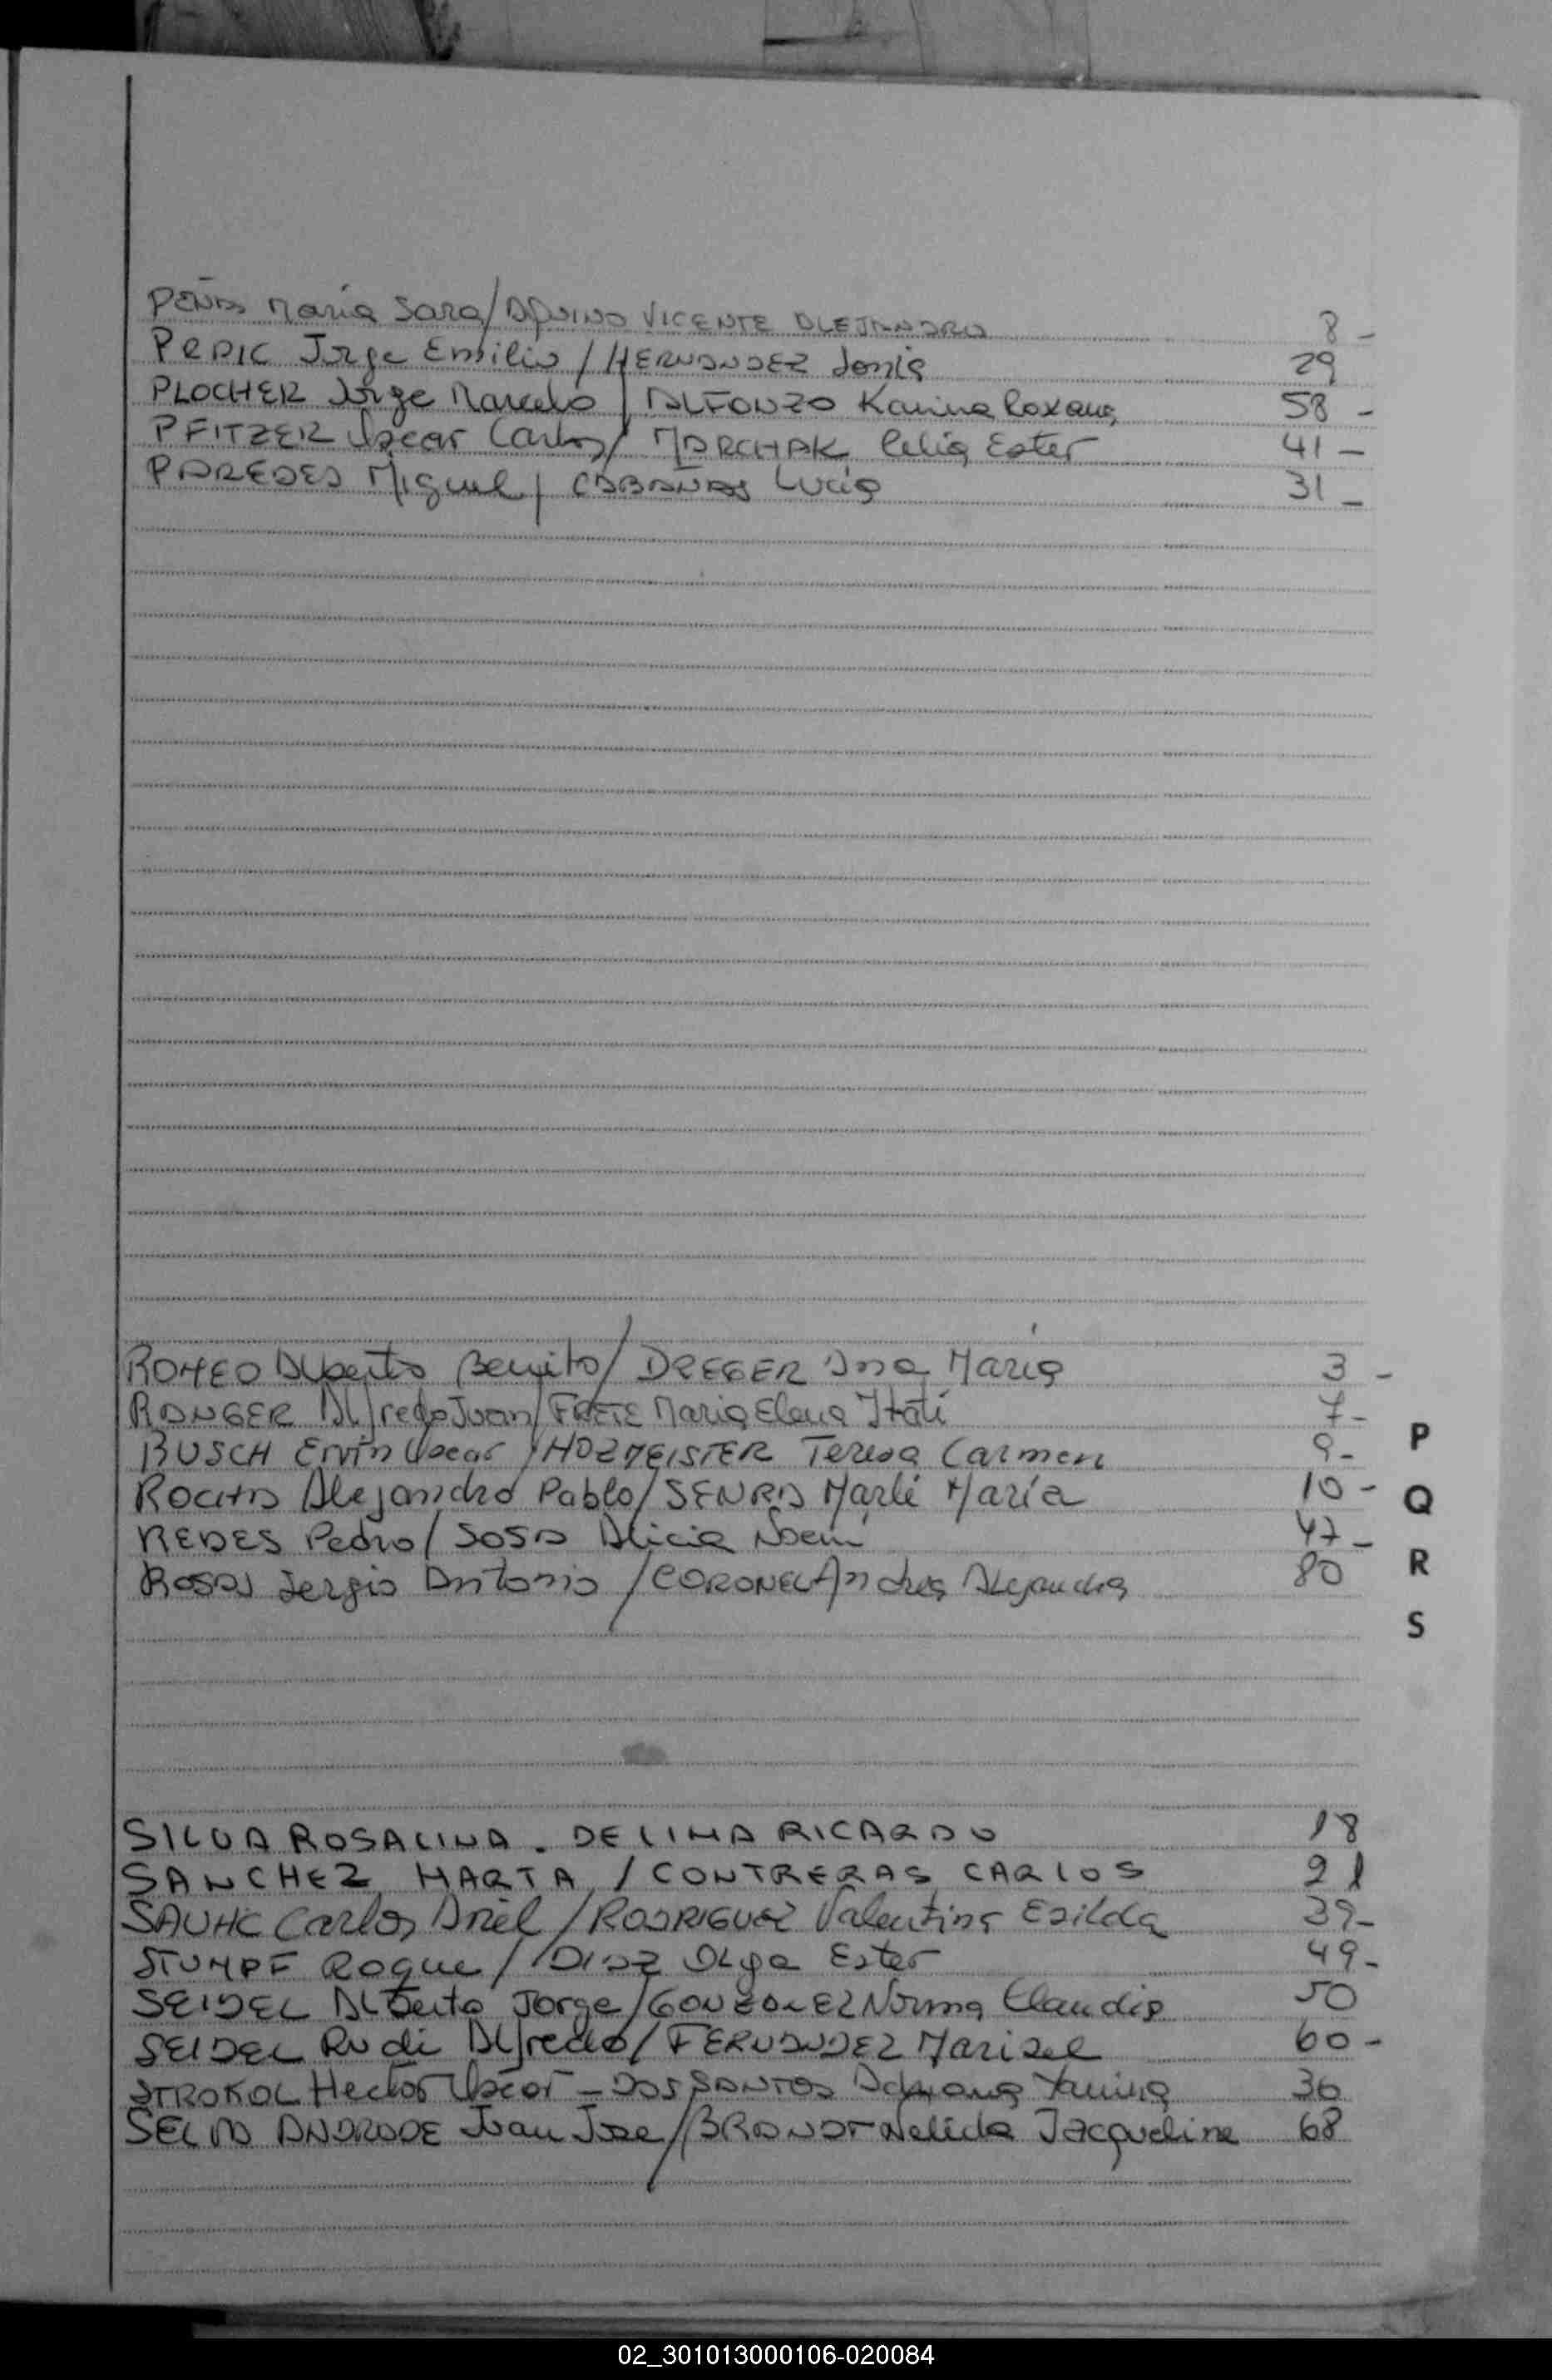 PEÑA María Sara/AQUINO VICENTE ALEJANDRO 8 -
PRDIC Jorge Emilio / HERNANDEZ Sonia 29
PLOCHER Jorge Marcelo / ALFONZO Karina Roxana 58 -
PFITZER Oscar Carlos / MARCHAK Celia Ester 41 -
PAREDES Miguel / CABAÑAS Lucia 31 -
ROMEO Alberto Benito / DREGER Ana María 3 -
RANGER Alfredo Juan / FRETE Maria Elena Itatí 7-
BUSCH Ervín Oscar / HOZMEISTER Teresa Carmen 9-
ROCHA Alejandro Pablo / SENRA Marlí María 10 -
P
Q
READES Pedro / SOSA Alicia Noemí 47 -
ROSAS Sergio Antonio / CORONEL Andrea Alejandra 80
R
S
SILVA ROSALINA . DE LIMA RICARDO 18
SANCHEZ MARTA / CONTRERAS CARLOS 21
SAUHC Carlos Ariel / RODRIGUEZ Valentina Ezilda 39-
STUMPF Roque / DIAZ Olga Ester 49-
SEIDEL Alberto Jorge / GONZALEZ Norma Claudia 50
SEIDEL Rudi Alfredo / FERNANDEZ Marisel 60 -
STROKOL Hector Oscar - DOS SANTOS Adriana Yanina 36
SELVA ANDRADE Juan Jose / BRANDT Nelida Jacqueline 68
02_301013000106-020084